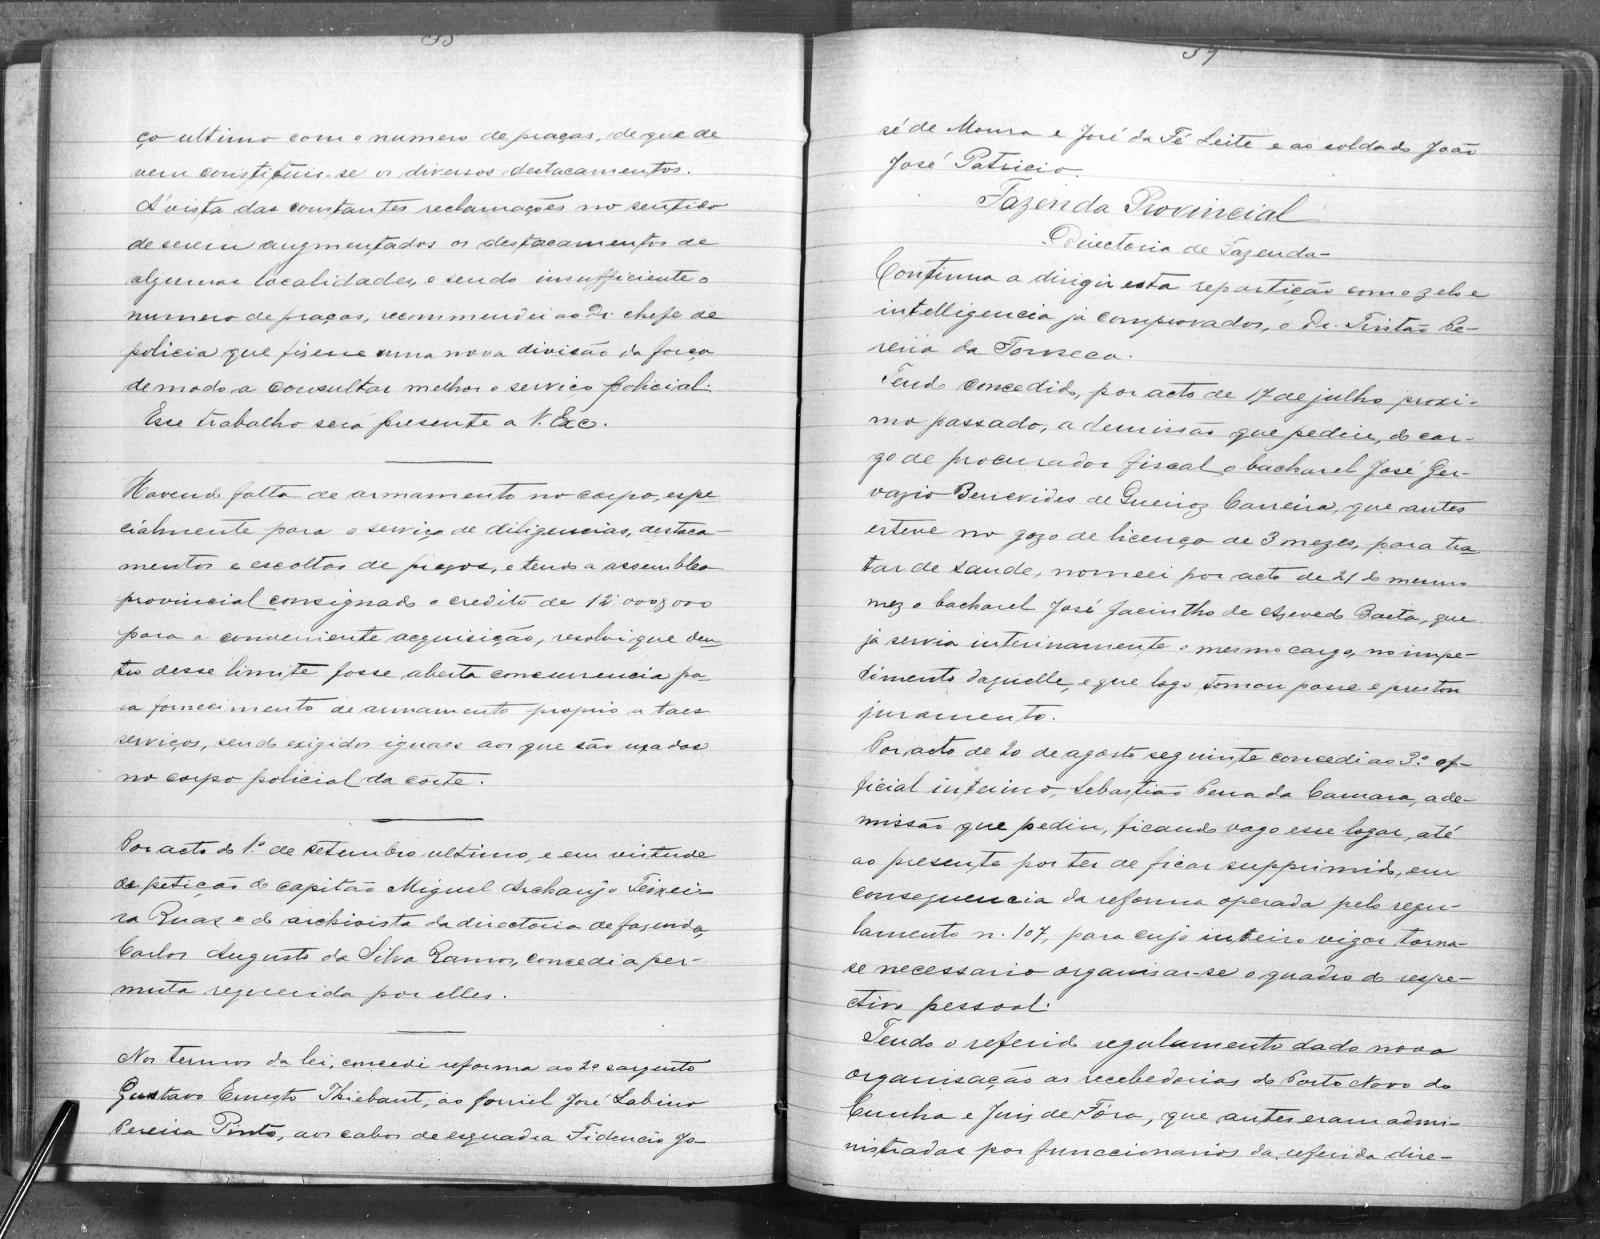 ço ultimo com o numero de praças, de que de
vem constituir-se os diversos destacamentos.
A' vista das constantes reclamações no sentido
de serem augmentados os destacamentos de
algumas localidades, e sendo insufficiente o
numero de praças, recommendei ao Dr. chefe de
policia que fisesse uma nova divisão da força
de modo a consultar melhor o serviço policial.
Esse trabalho será presente a V. Exc.
Havendo falta de armamento no corpo, espe
cialmente para o serviço de diligencias, destaca-
mentos e escoltas de presos, e tendo a assemblea
provincial consignado o credito de 12:000$000
para a conveniente acquisição, resolvi que den-
tro desse limite fosse aberta concurrencia pa-
ra fornecimento de armamento proprio a taes
serviços, sendo exigidos iguaes aos que são usados
no corpo policial da côrte.
Por acto do 1.º de setembro ultimo, e em virtude
de petição do capitão Miguel Archanjo Teixei-
ra Ruas e do archivista da directoria de fasenda,
Carlos Augusto da Silva Ramos, concedi a per-
muta requerida por elles.
Nos termos da lei, concedi reforma ao 2º sargento
Gustavo Ernesto Thiebaut, ao forriel José Sabino
Pereira Pinto, aos cabos de esquadra Fidencio Jo-
34
sé de Moura e José da Fé Leite e ao soldado João
José Patricio.
Fazenda Provincial
Directoria de Fazenda
Continua a dirigir esta repartição com o zelo e
intelligencia já comprovados, o Dr. Tristão Pe-
reira da Fonseca.
Tendo concedido, por acto de 17 de julho proxi-
mo passado, a demissão que pediu, do car-
go de procurador fiscal o bacharel José Ger-
vazio Benevides de Queiroz Carreira, que antes
esteve no gozo de licença de 3 mezes, para tra-
tar de saude, nomeei por acto de 21 do mesmo
mez o bacharel José Jacintho de Azevedo Baeta, que
já servia interinamente o mesmo cargo, no impe-
dimento daquelle, e que logo tomou posse e prestou
juramento.
Por acto de 20 de agosto seguinte concedi ao 3.º of-
ficial interino, Sebastião Penna da Camara, a de-
missão que pediu, ficando vago esse logar, até
ao presente por ter de ficar supprimido, em
consequencia da reforma operada pelo regu-
lamento n. 107, para cujo inteiro vigor torna-
se necessario organisar-se o quadro do respe-
ctivo pessoal.
Tendo o referido regulamento dado nova
organisação as recebedorias do Porto Novo do
Cunha e Juiz de Fóra, que antes eram admi-
nistradas por funccionarios da referida dire-